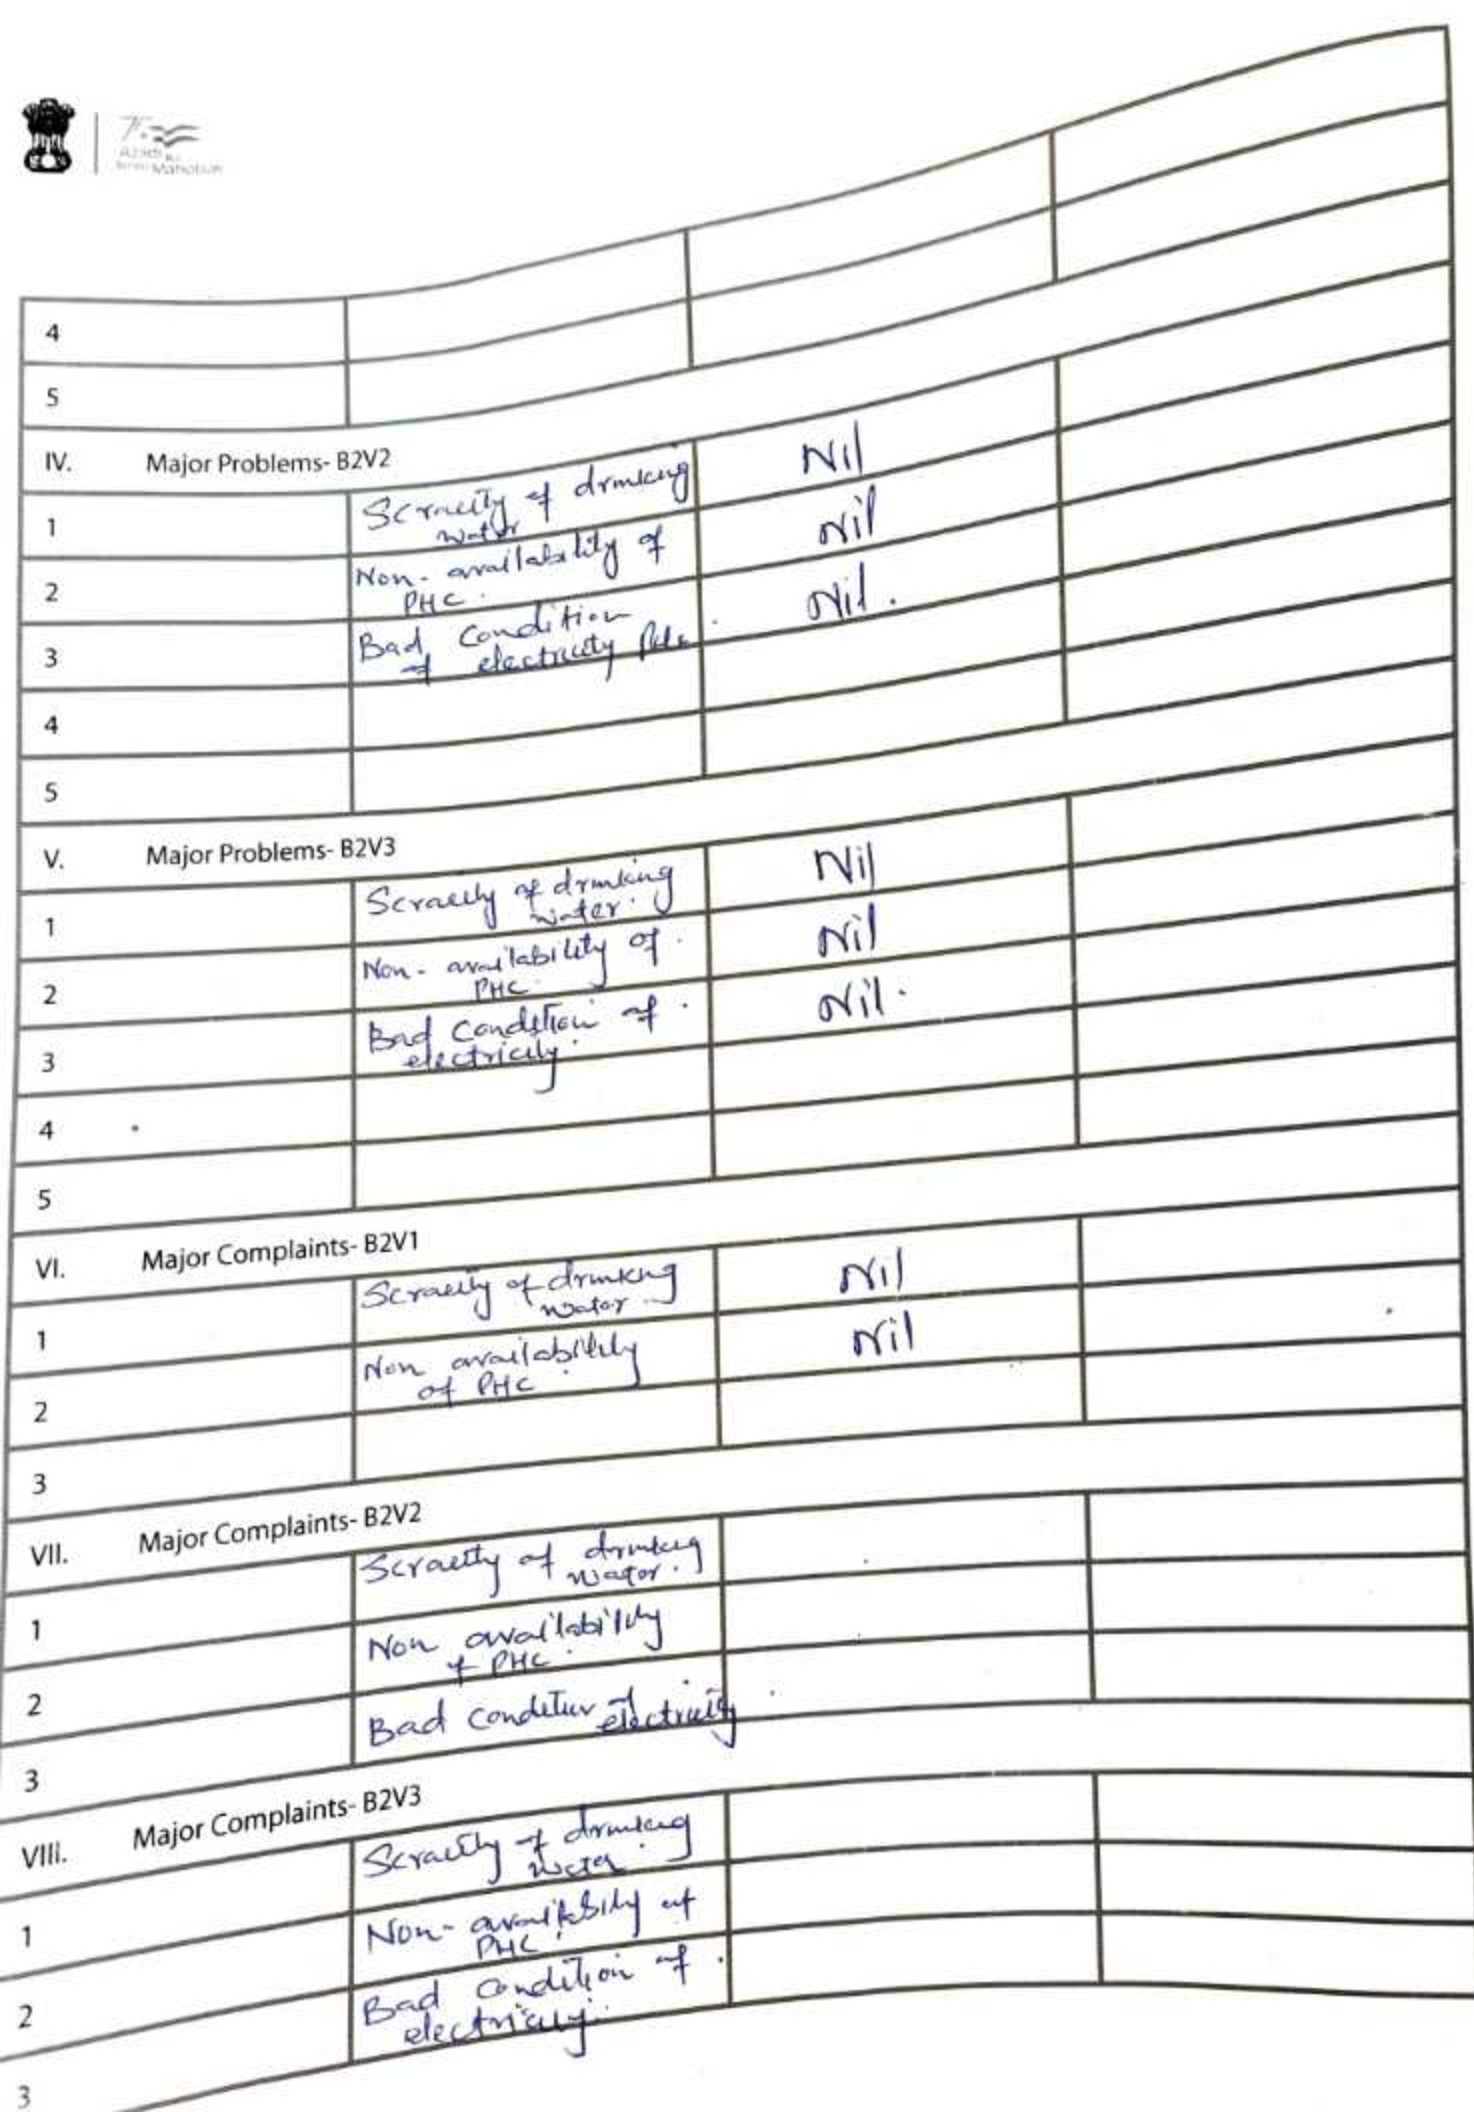 Azadi Ka
Amrit Mahotsav
4
5
IV. Major Problems- B2V2
1 Scracity of drinking Nil
water
2 Non-availability of Nil
PHC.
3 Bad Condition Nil.
of electricity
4
5
V. Major Problems- B2V3
1 Scracity of drinking Nil
water.
2 Non-availability of Nil
PHC
3 Bad Condition of Nil.
electricity.
4
5
VI. Major Complaints- B2V1
1 Scracity of drinking Nil
water
2 Non availability Nil
of PHC
3
VII. Major Complaints- B2V2
1 Scracity of drinking
water.
2 Non availability
of PHC.
3 Bad condition of electricity
VIII. Major Complaints- B2V3
1 Scracity of drinking
water
2 Non-availability of
PHC.
3 Bad condition of
electricity.